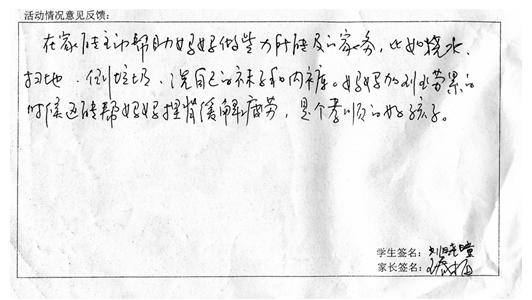 活动情况意见反馈：
在家能主动帮助妈妈做些力所能及的家务，比如烧水、
扫地、倒垃圾、洗自己的袜子和内裤。妈妈加班劳累的
时候还能帮妈妈捶背缓解疲劳，是个孝顺的好孩子。
学生签名：刘晓瞳
家长签名：